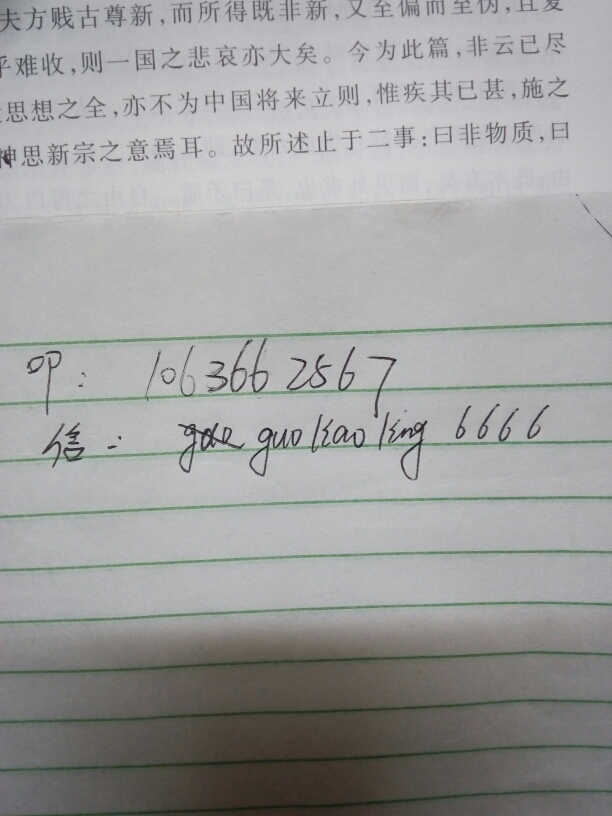 夫方贱古尊新,而所得既非新,又至偏而至伪,且复
乎难收,则一国之悲哀亦大矣。今为此篇,非云已尽
思想之全,亦不为中国将来立则,惟疾其已甚,施之
神思新宗之意焉耳。故所述止于二事:曰非物质,曰
叩: 1063662567
信: guokaoking 6666